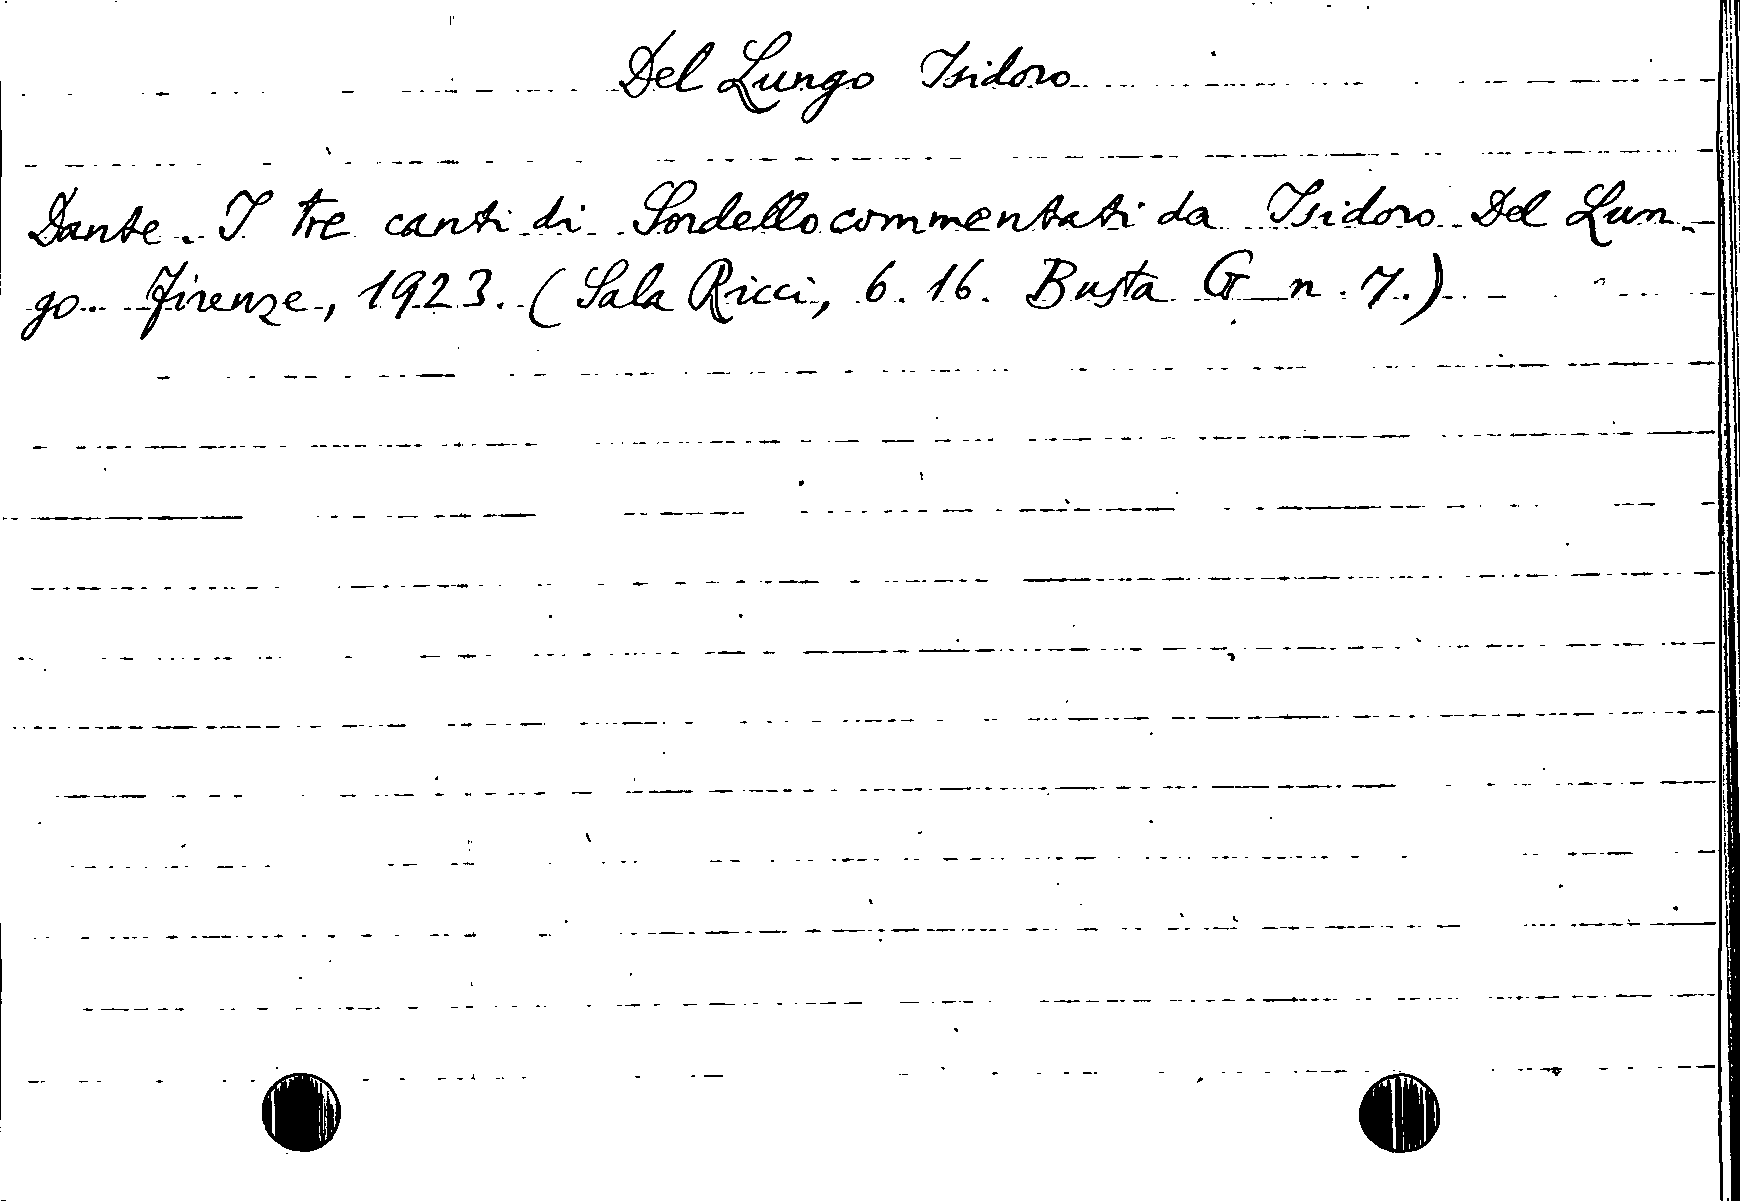 Del Lungo Isidoro
Dante. I tre canti di Sordello commentati da Isidoro Del Lun-
go. Firenze, 1923. (Sala Ricci, 6. 16. Busta G n. 7.)